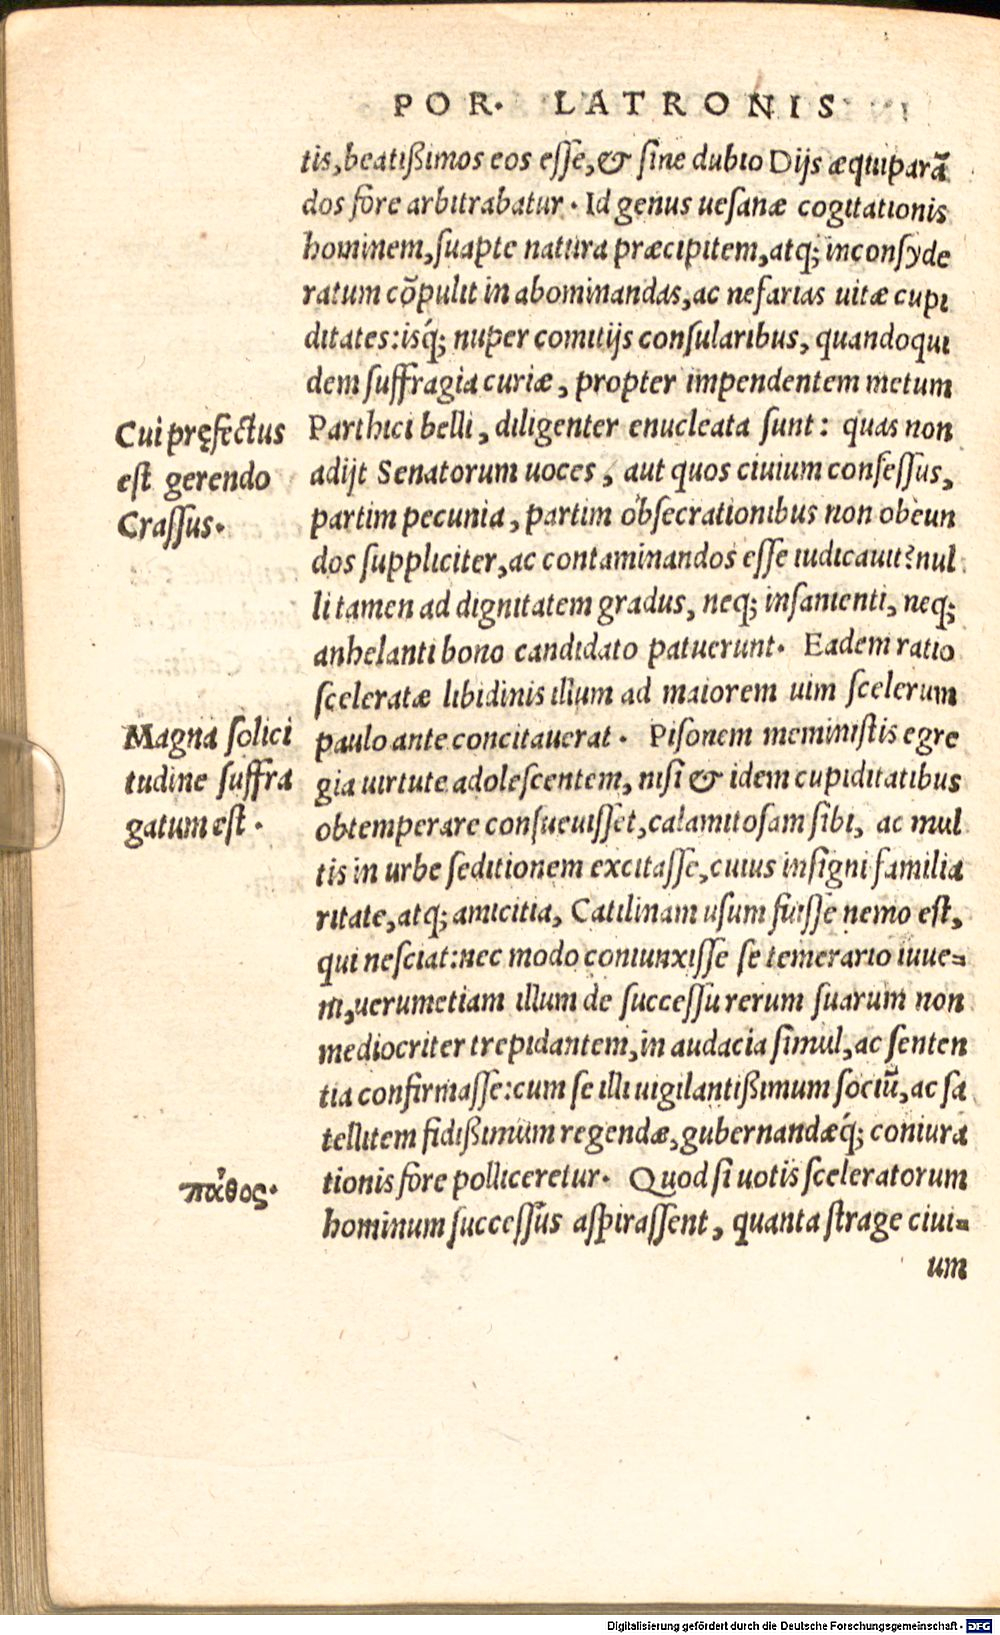 POR. LATRONIS
tis, beatißimos eos esse, & sine dubio Dijs æquiparā
dos fore arbitrabatur. Id genus uesanæ cogitationis
hominem, suapte natura præcipitem, atq; inconsyde
ratum cōpulit in abominandas, ac nefarias uitæ cupi
ditates: isq́; nuper comitijs consularibus, quandoqui
dem suffragia curiæ, propter impendentem metum
Parthici belli, diligenter enucleata sunt: quas non
adijt Senatorum uoces, aut quos ciuium consessus,
partim pecunia, partim obsecrationibus non obeun
dos suppliciter, ac contaminandos esse iudicauit? nul
li tamen ad dignitatem gradus, neq; insanienti, neq;
anhelanti bono candidato patuerunt. Eadem ratio
sceleratæ libidinis illum ad maiorem uim scelerum
paulo ante concitauerat. Pisonem meministis egre
gia uirtute adolescentem, nisi & idem cupiditatibus
obtemperare consueuisset, calamitosam sibi, ac mul
tis in urbe seditionem excitasse, cuius insigni familia
ritate, atq; amicitia, Catilinam usum fuisse nemo est,
qui nesciat: nec modo coniunxisse se temerario iuue=
ni, uerumetiam illum de successu rerum suarum non
mediocriter trepidantem, in audacia simul, ac senten
tia confirmasse: cum se illi uigilantißimum sociū, ac sa
tellitem fidißimum regendæ, gubernandæq́; coniura
tionis fore polliceretur. Quod si uotis sceleratorum
hominum successus aspirassent, quanta strage ciui=
um
Cui pręfectus
est gerendo
Crassus.
Magna solici
tudine suffra
gatum est.
πάθος.
Digitalisierung gefördert durch die Deutsche Forschungsgemeinschaft - DFG